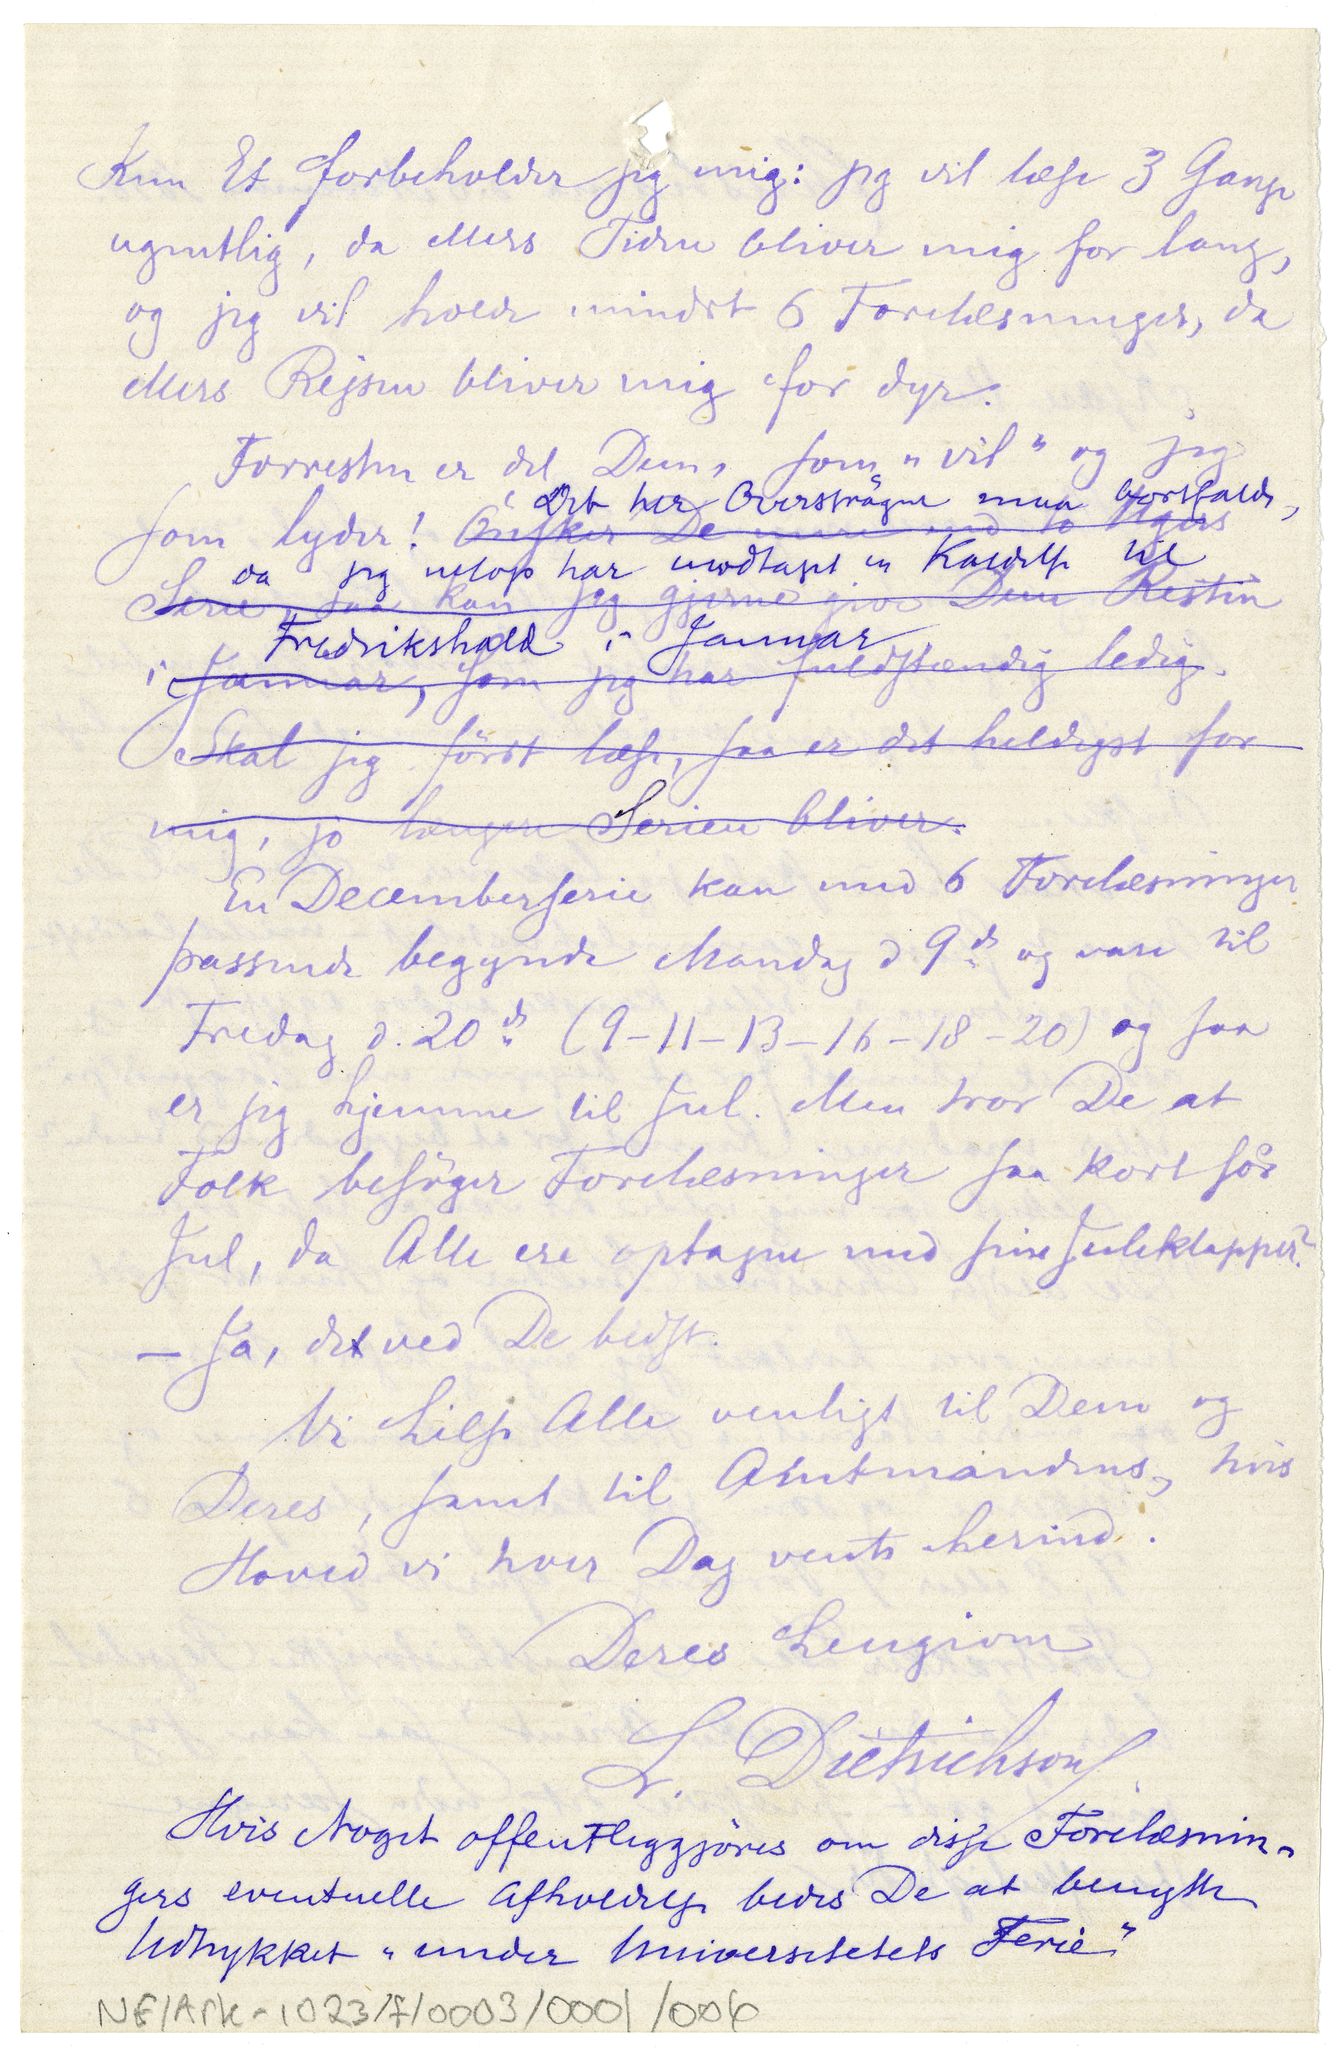 Kun Et forbeholder jeg mig: jeg vil læse 3 Gange
ugentlig, da ellers Tiden bliver mig for lang,
og jeg vil holde mindst 6 Forelæsninger, da
ellers Rejsen bliver mig for dyr.
Forresten er det Dem, som "vil" og jeg
Det her Overströgne maa bortfalde,
som lyder! Önsker De mere end to Ugers
da jeg netop har modtaget en Kaldelse til
Serie, saa kan jeg gjerne give Dem Resten
Fredrikshald i Januar
i Januar, som jeg har fuldstændig ledig.
Skal jeg först læse, saa er det heldigst for
mig, jo længere Serien bliver.
En Decemberserie kan med 6 Forelæsninger
passende begynde Mandag d 9de og vare til
Fredag d. 20de (9-11-13-16-18-20) og saa
er jeg hjemme til Jul. Men tror De at
Folk besöger Forelæsninger saa kort för
Jul, da Alle ere optagne med sine Juleklapper?
- Ja, det ved De bedst.
Vi hilse Alle venligt til Dem og
Deres, samt til Amtmandens, hvis
Hoved vi hver Dag vente herind.
Deres hengivne
L. Dietrichson
Hvis Noget offentliggjöres om disse Forelæsnin-
gers eventuelle Afholdelse bedes De at benytte
Udtrykket "under Universitetets Ferie"
NF/Ark-1023/F/0003/0001/006